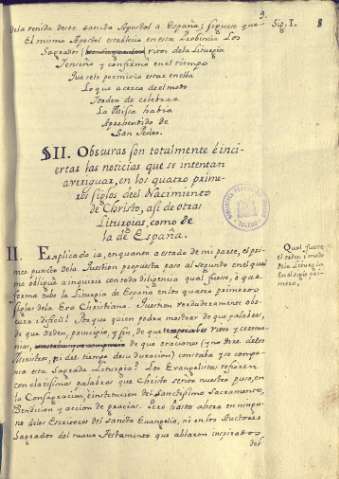 9.
Sig. I. 8
de la venida de este Santo Apostol a España; siguese que
el mismo Apostol establecio en esta Provincia los
Sagrados ritos de la Liturgia
Jenseño y confirmò en el tiempo
que se le permitio estar en ella
Lo que acerca del modo
de celebrar
la Missa havia
aprehendido de
San Pedro.
§II. Obscuras son totalmente è inci-
ertas las noticias que se intentan
averiguar, en los quatro prime-
ros siglos del Nacimiento
de Christo, asi de otras
Liturgias, como de
la de España.
II. Explicado ia, en quanto a estado de mi parte, el pri-
mer punto de la Question propuesta paso al segundo en el que
me obliguè a inquirir con toda diligencia qual fuese, ò que
forma tubo la Liturgia de España en los quatro primeros
siglos de la Era Christiana. Question verdaderamente obs-
cura i dificil! Porque quien podra mostrar de que palabras,
de que orden, principio, y fin, de que ritos y ceremo-
nias, de que oraciones (no dire de los
Ministros, ni del tiempo de su duracion) constaba y se compo-
nia esta Sagrada Liturgia? Los Evangelistas refieren
con clarisimas palabras que Christo Señor nuestro puso, en
la Consagracion, e institucion del Santisimo Sacramento,
Bendicion y accion de gracias. Pero hasta ahora en ningu-
no de los Escritores del Santo Evangelio, ni en los Auctores
Sagrados del nuevo Testamento que ablaron inspirados
del
Qual fuese
el orden i modo
de la Liturgia
en el siglo pri-
mero.